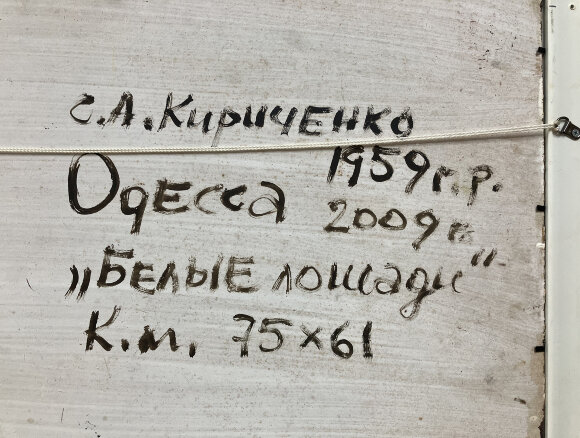 С.А.Кириченко
1959г.р.
Одесса 2009г.
„Белые лошади“
К.м. 75×61